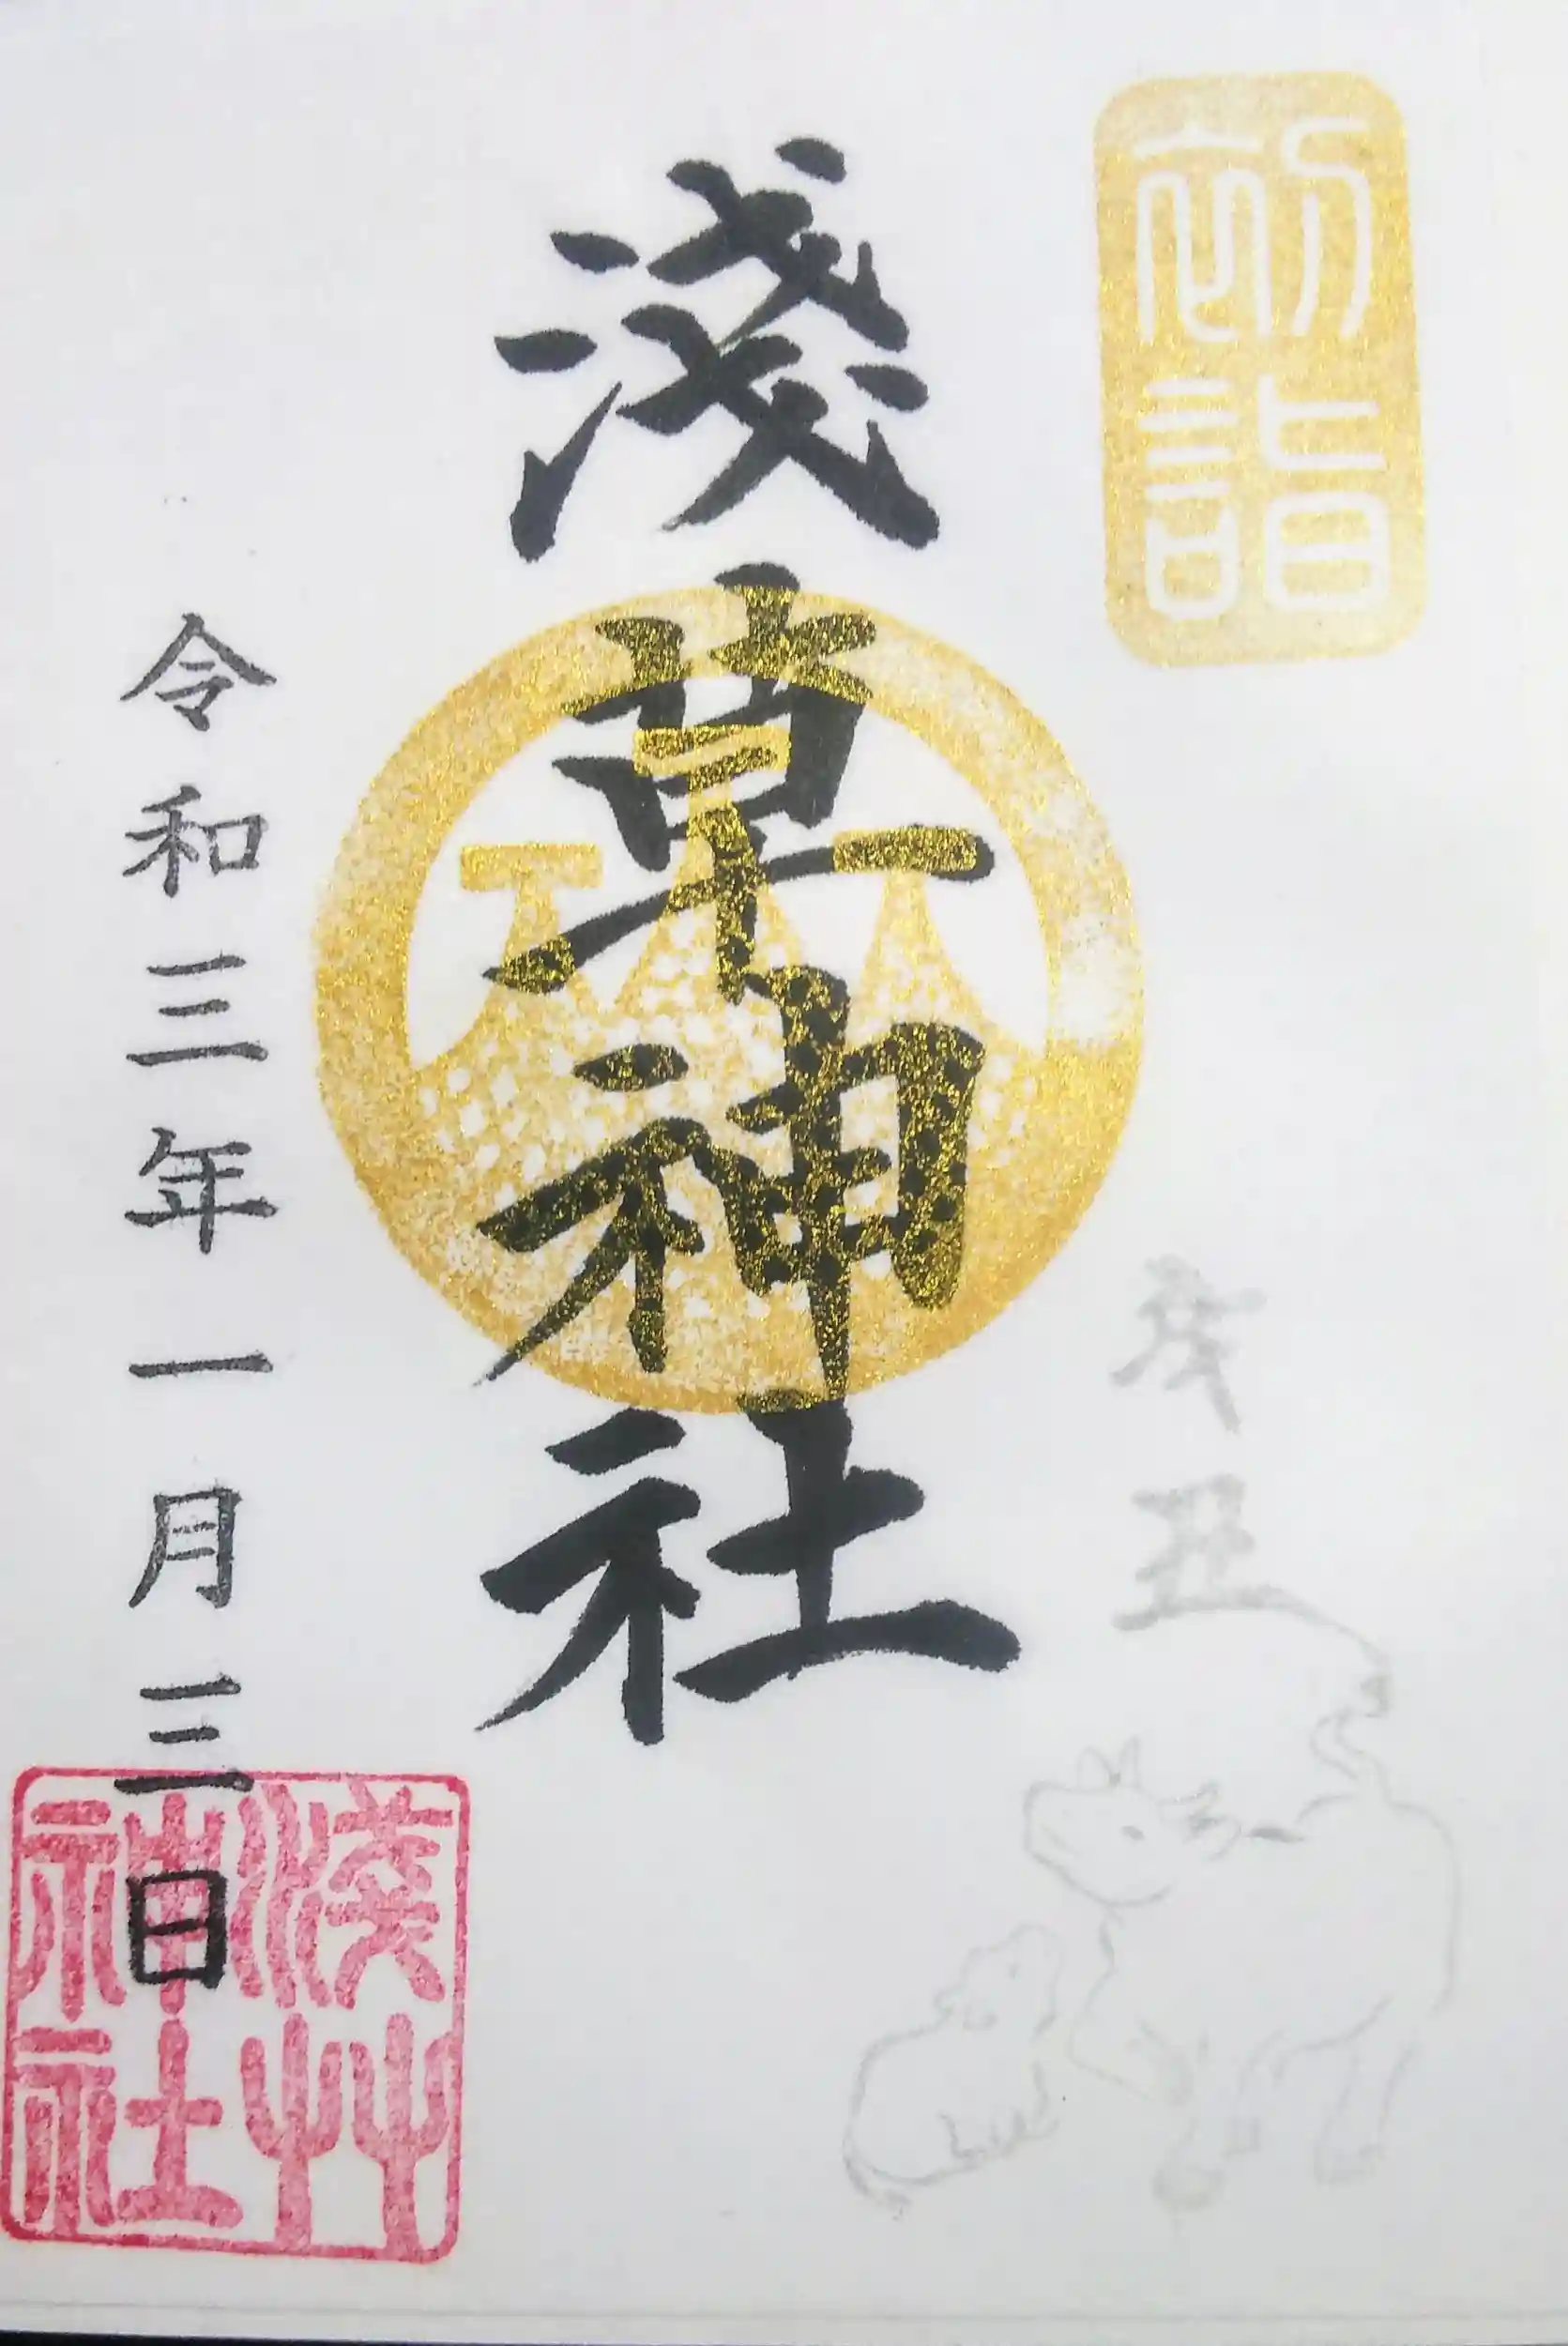 初詣
辛丑
淺草神社
令和三年一月三日
淺艸
神社